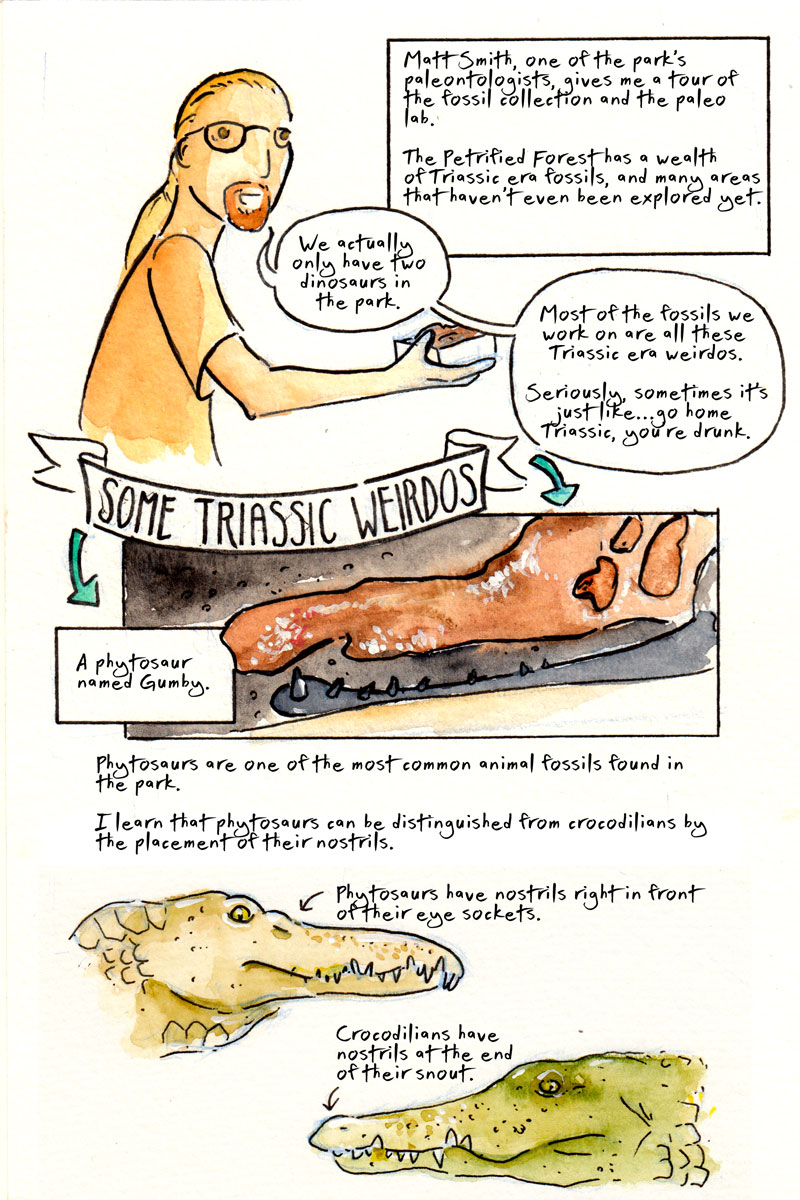 Matt Smith, one of the park's
paleontologists, gives me a tour of
the fossil collection and the paleo
lab.
The Petrified Forest has a wealth
of Triassic era fossils, and many areas
that haven't even been explored yet.
We actually
only have two
dinosaurs in
the park.
Most of the fossils we
work on are all these
Triassic era weirdos.
Seriously, sometimes it's
just like...go home
Triassic, you're drunk.
SOME TRIASSIC WEIRDOS
A phytosaur
named Gumby.
Phytosaurs are one of the most common animal fossils found in
the park.
I learn that phytosaurs can be distinguished from crocodilians by
the placement of their nostrils.
Phytosaurs have nostrils right in front
of their eye sockets.
Crocodilians have
nostrils at the end
of their snout.